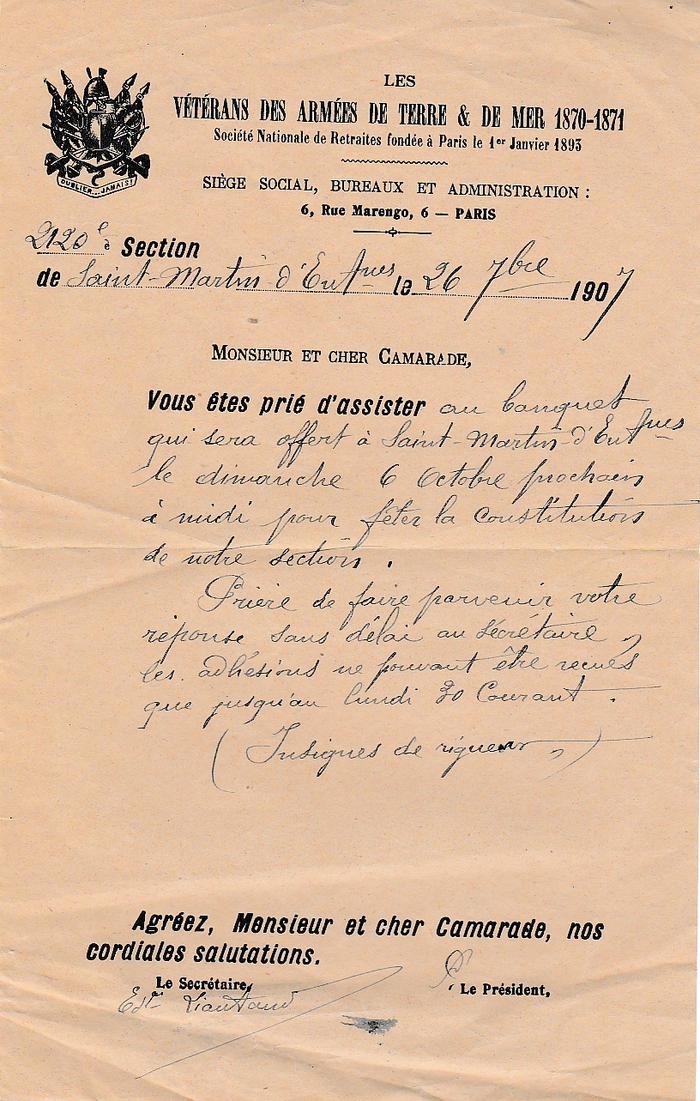 LES
VÉTÉRANS DES ARMÉES DE TERRE & DE MER 1870-1871
Société Nationale de Retraites fondée à Paris le 1er Janvier 1893
OUBLIER... JAMAIS!
SIÈGE SOCIAL, BUREAUX ET ADMINISTRATION :
6, Rue Marengo, 6 — PARIS
2120e e Section
de Saint-Martin-d'Entques le 26 7bre 1907
MONSIEUR ET CHER CAMARADE,
Vous êtes prié d'assister au banquet
qui sera offert à Saint-Martin-d'Entques
le dimanche 6 Octobre prochain
à midi pour fêter la constitution
de notre section.
Prière de faire parvenir votre
réponse sans délai au secrétaire,
les adhésions ne pouvant être reçues
que jusqu'au lundi 30 Courant.
(Insignes de rigueur,)
Agréez, Monsieur et cher Camarade, nos
cordiales salutations.
Le Secrétaire, Le Président,
Liautaud